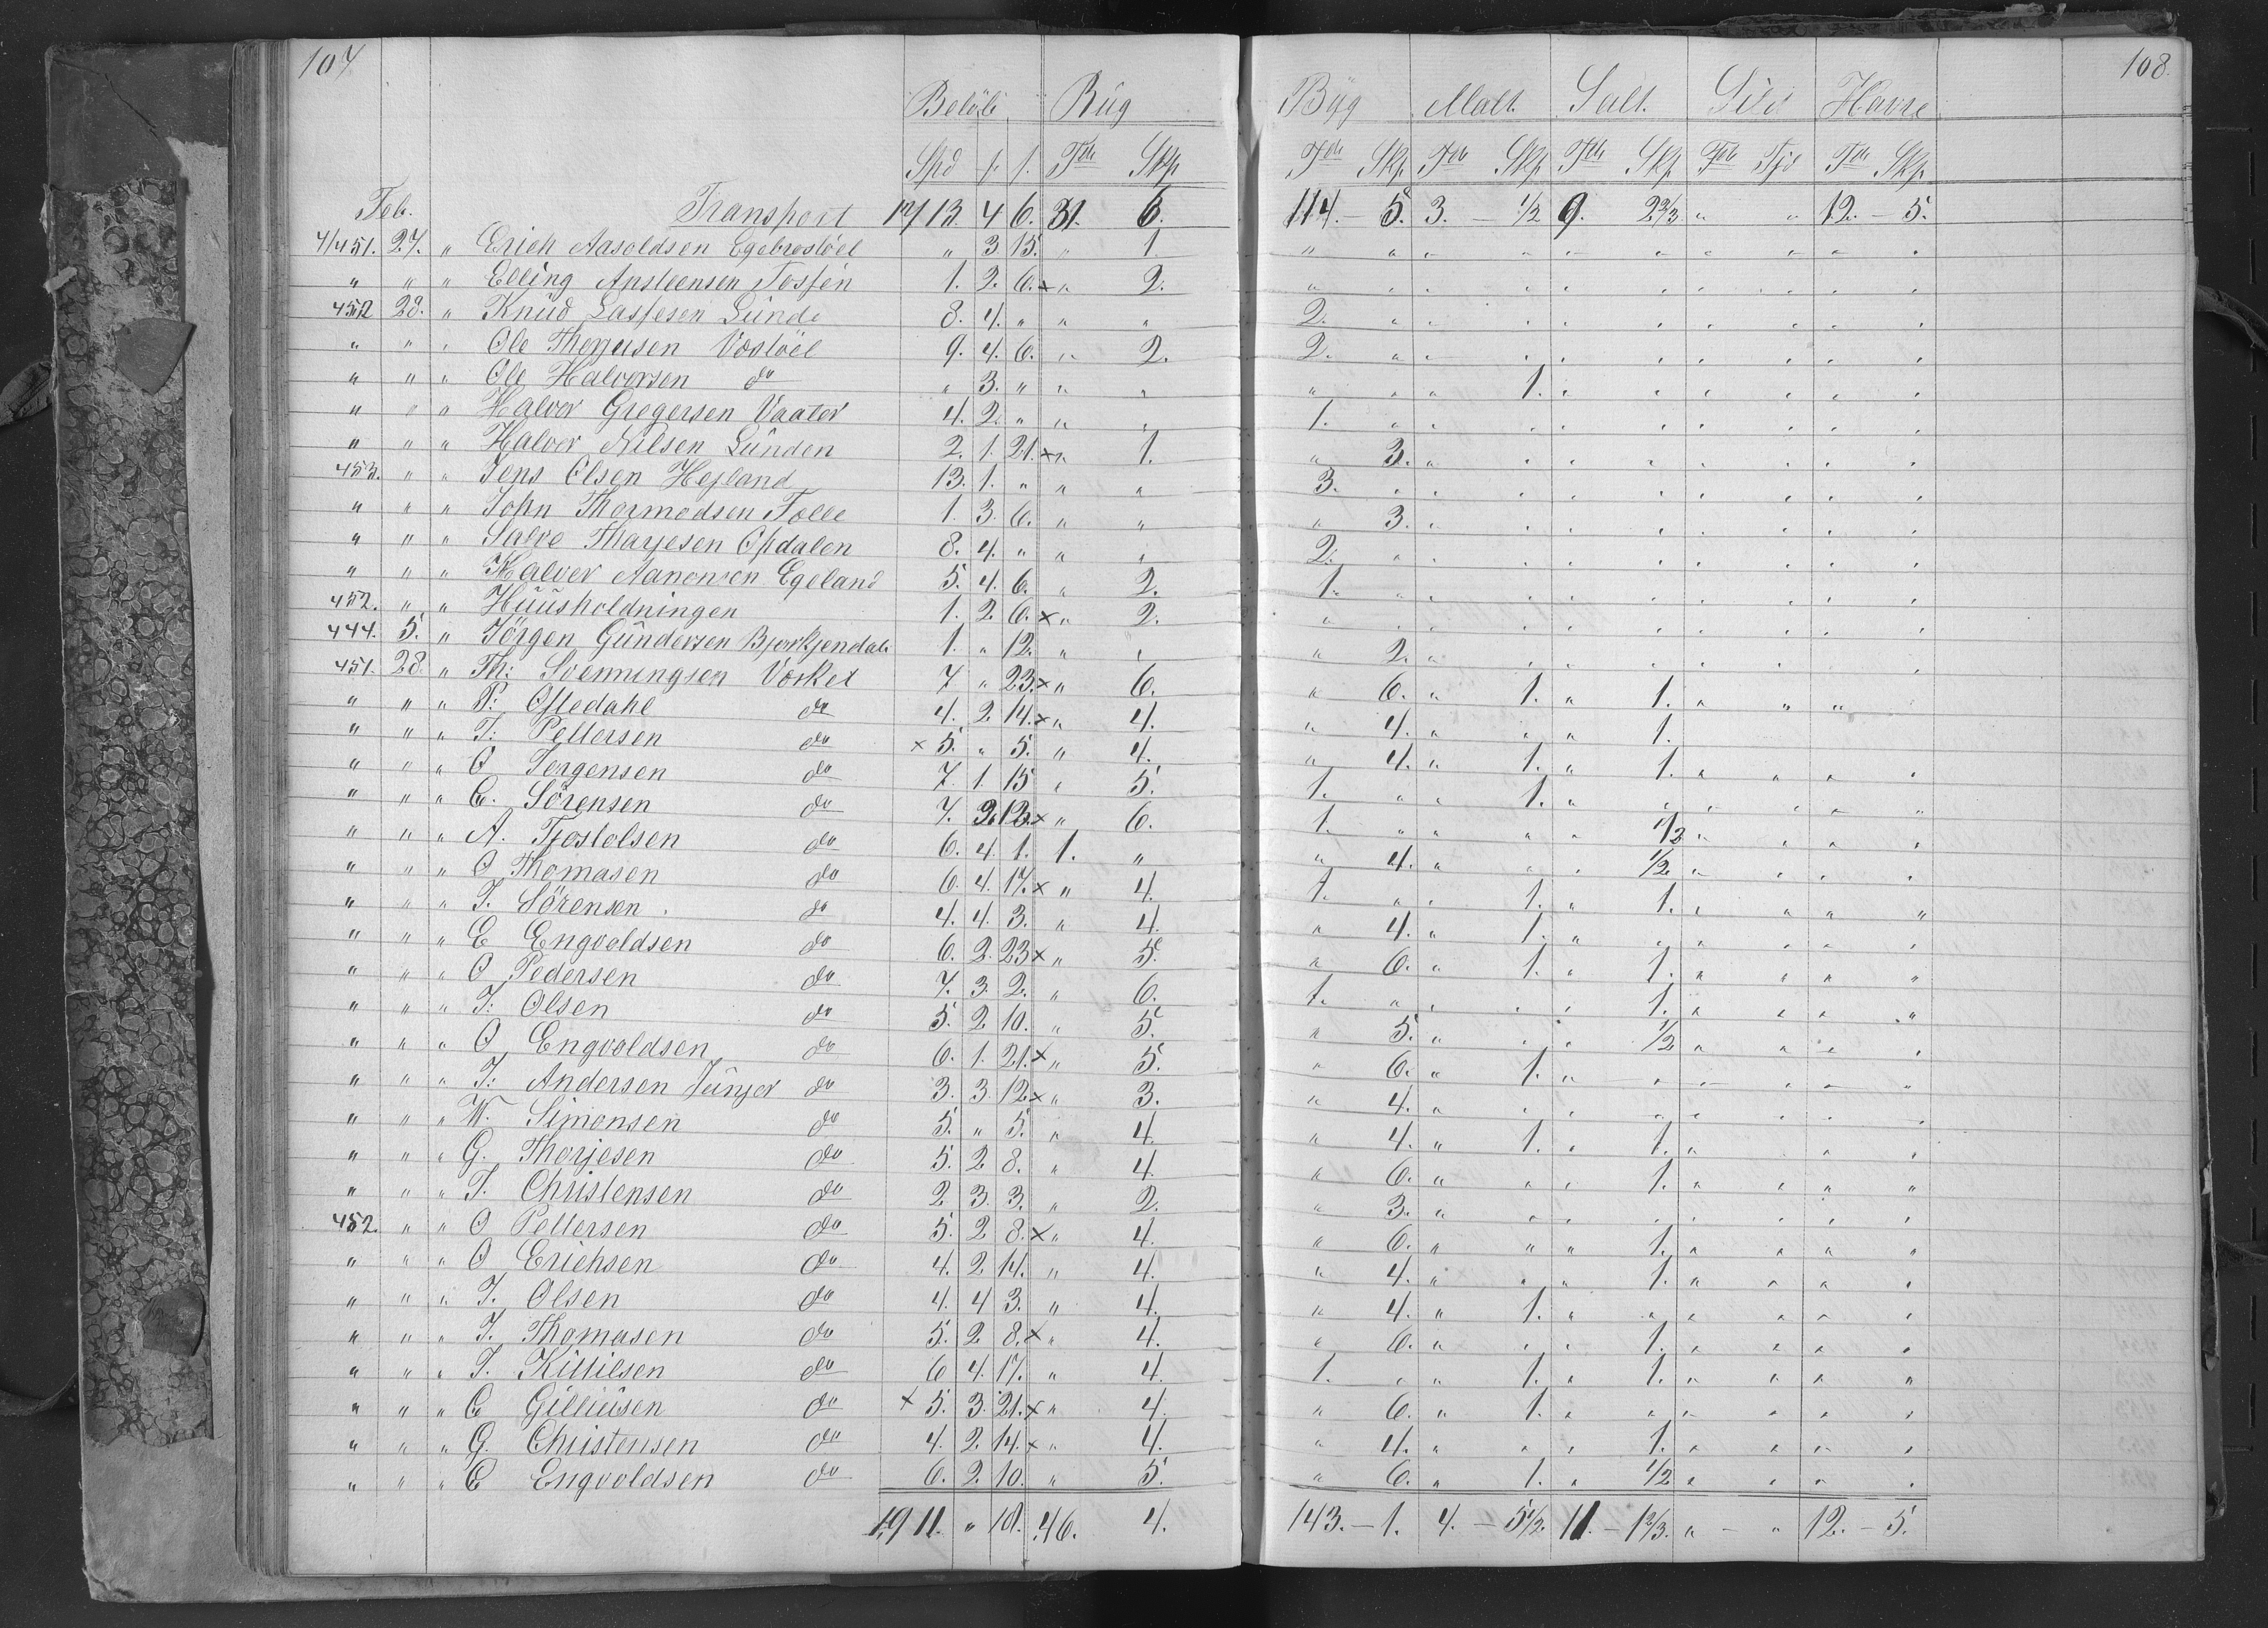 107
Beløb Rüg
Spd f. f. Tde Skp
Feb. Transport 1713. 4 6. 31. 6.
4/451. 27. " Erich Aasoldsen Egebrostöel " 3 15. " 1.
" " " Elling Apsteensen Fosfen 1. 2. 6. × " 2.
452 28. " Knüd Lassesen Lünde 8. 4. " " "
" " " Ole Thorsen Vostöel 9. 4. 6. " 2.
" " " Ole Halvorsen do " 3. " " "
" " " Halvor Gregersen Vaator 4. 2. " " "
" " " Halvor Nilsen Lünden 2. 1. 21. × " 1.
453. " " Jens Olsen Hejland 13. 1. " " "
" " " John Thormodsen Tolle 1. 3. 6. " "
" " " Salve Tharjesen Opdalen 8. 4. " " "
" " " Halver Aanonsen Egeland 5. 4. 6. " 2.
452. " " Hüüsholdningen 1. 2. 6. × " 2.
444. 5. " Jörgen Gündersen Bjorkjendal 1. " 12. " "
451. 28. " Th: Svenningsen Vorket 7 " 23. × " 6.
" " " P: Ofledahl do 4. 2 14. × " 4.
" " " T: Pettersen do × 5. " 5. " 4.
" " " O Jorgensen do 7. 1. 15 " 5.
" " " C. Sörensen do 7. 2 12. × " 6.
" " " A. Tjostolsen do 6. 4. 1. 1. "
" " " O Thomasen do 6. 4. 17. × " 4.
" " " J. Sörensen. do 4. 4. 3. " 4.
" " " E Engvoldsen do 6. 2. 23 × " 5.
" " " O Pedersen do 7. 3. 2. " 6.
" " " J: Olsen do 5. 2 10. " 5.
" " " O Engvoldsen do 6. 1. 21. × " 5.
" " " J: Andersen Jünjor do 3. 3. 12. × " 3.
" " " W. Simonsen do 5. " 5. " 4.
" " " G. Thorjesen do 5. 2 8. " 4.
" " " J. Christensen do 2 3. 3. " 2.
452. " " O Pettersen do 5. 2 8. × " 4.
" " " O Erichsen do 4. 2. 14. " 4.
" " " J. Olsen do 4. 4 3. " 4.
" " " J. Thomasen do 5. 2. 8. × " 4.
" " " T. Kittilsen do 6 4. 17. " 4.
" " " C Gilliüsen do × 5. 3. 21. × " 4.
" " " G. Christensen do 4. 2. 14. × " 4.
" " " C Engvoldsen do 6. 2. 10. " 5.
1911. " 18. 46. 4.
108.
Byg Malt. Salt. Sild Havre
Tde Skp. Tde Skp Tde Skp Tde Fjd Tde Skp.
114. - 5. 3. - 1/2 9. 2 2/3 " " 12. - 5.
" " " " " " " " " "
" " " " " " " " " "
2. " " " " " " " " "
2. " " " " " " " " "
" " " 1. " " " " " "
1. " " " " " " " " "
" 3. " " " " " " " "
3. " " " " " " " " "
" 3. " " " " " " " "
2. " " " " " " " " "
1. " " " " " " " " "
" " " " " " " " " "
" 2. " " " " " " "
" 6. " 1. " 1. " " "
" 4. " " " 1.
" 4. " 1. " 1. " " " "
1. " " 1. " " " " " "
1. " " " " 1/2 " " " "
" 4. " " " 1/2 " " " "
1. " " 1. " 1. " " " "
" 4. " 1. " " " " " "
" 6. " 1. " 1. " " " "
1. " " " " 1. " " " "
" 5. " " " 1/2 " " " "
" 6. " 1. " " " " " "
" 4. " " " " " " " "
" 4. " 1. " 1. " " "
" 6. " " " 1. " " " "
" 3. " " " " " " " "
" 6. " " " 1. " " " "
" 4. " " " 1. " " " "
" 4. " 1. " " " " " "
" 6. " " " 1. " " " "
1. " " 1. " 1. " " " "
" 6. " 1. " " " " " "
" 4. " " " 1. " " " "
" 6. " 1. " 1/2 " " " "
143. - 1. 4. - 5 1/2. 11. - 1 2/3. " - " 12. - 5.